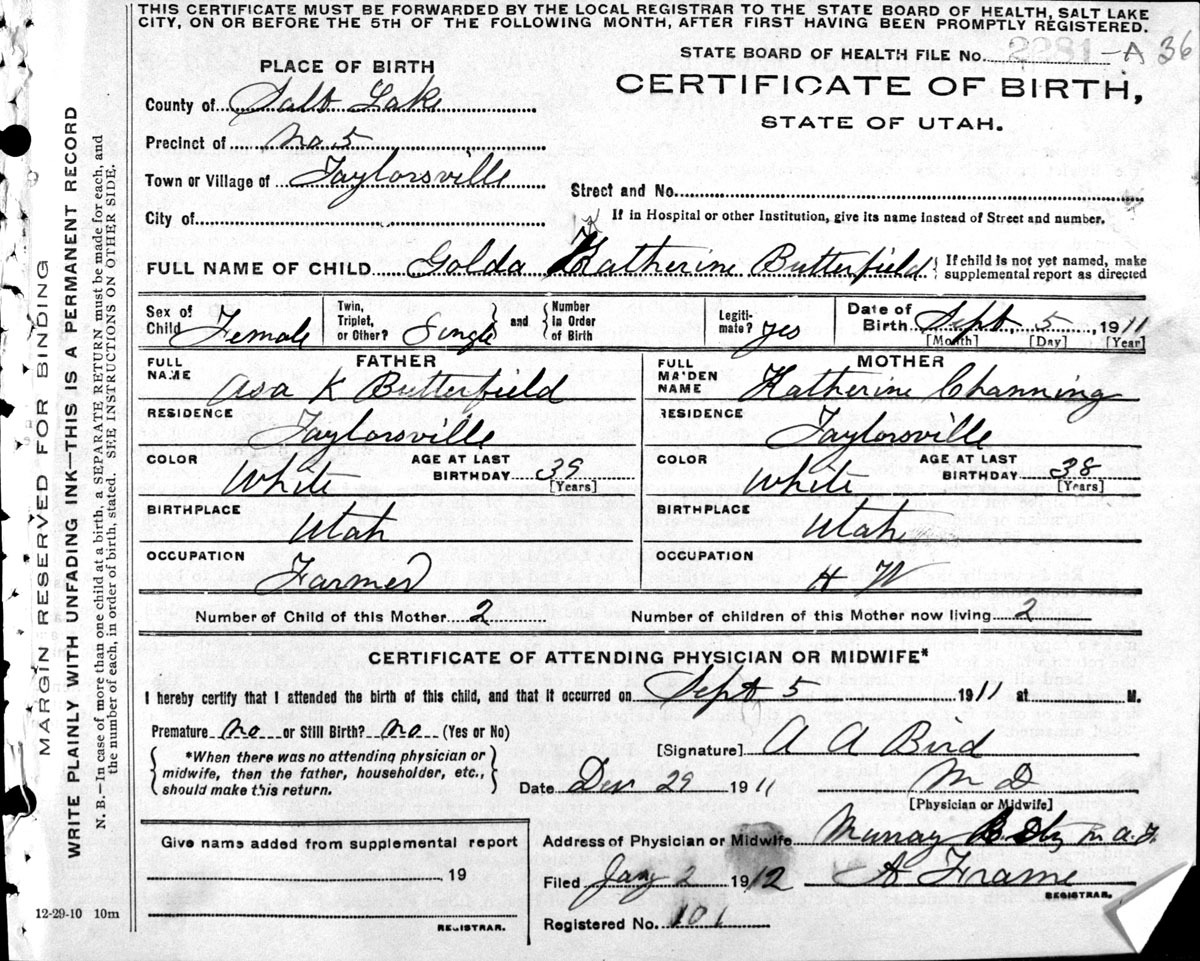 THIS CERTIFICATE MUST BE FORWARDED BY THE LOCAL REGISTRAR TO THE STATE BOARD OF HEALTH, SALT LAKE
CITY, ON OR BEFORE THE 5TH OF THE FOLLOWING MONTH, AFTER FIRST HAVING BEEN PROMPTLY REGISTERED.
STATE BOARD OF HEALTH FILE No. 2281-A 36
PLACE OF BIRTH
CERTIFICATE OF BIRTH,
STATE OF UTAH.
County of Salt Lake
Precinct of No. 5
Town or Village of Taylorsville
Street and No.
City of
If in Hospital or other Institution, give its name instead of Street and number.
FULL NAME OF CHILD Golda Katherine Butterfield
If child is not yet named, make
supplemental report as directed
Sex of Child Female
Twin, Triplet, or Other? Single and Number in Order of Birth
Legiti-mate? yes
Date of Birth Sept 5 1911
[Month] [Day] [Year]
FATHER
FULL NAME Asa K Butterfield
RESIDENCE Taylorsville
COLOR White AGE AT LAST BIRTHDAY 39 [Years]
BIRTHPLACE Utah
OCCUPATION Farmer
MOTHER
FULL MAIDEN NAME Katherine Channing
RESIDENCE Taylorsville
COLOR White AGE AT LAST BIRTHDAY 38 [Years]
BIRTHPLACE Utah
OCCUPATION H W
Number of Child of this Mother 2 Number of children of this Mother now living 2
CERTIFICATE OF ATTENDING PHYSICIAN OR MIDWIFE*
I hereby certify that I attended the birth of this child, and that it occurred on Sept 5 1911 at M.
Premature no or Still Birth? no (Yes or No)
[Signature] A A Bird
*When there was no attending physician or
midwife, then the father, householder, etc.,
should make this return.
Date 29 1911 M D
[Physician or Midwife]
Give name added from supplemental report
19
REGISTRAR.
Address of Physician or Midwife Murray
Filed Jany 2 1912 A Frame
REGISTRAR.
Registered No. 101
12-29-10 10m
MARGIN RESERVED FOR BINDING
WRITE PLAINLY WITH UNFADING INK—THIS IS A PERMANENT RECORD
N. B.—In case of more than one child at a birth, a SEPARATE RETURN must be made for each, and
the number of each, in order of birth, stated. SEE INSTRUCTIONS ON OTHER SIDE.